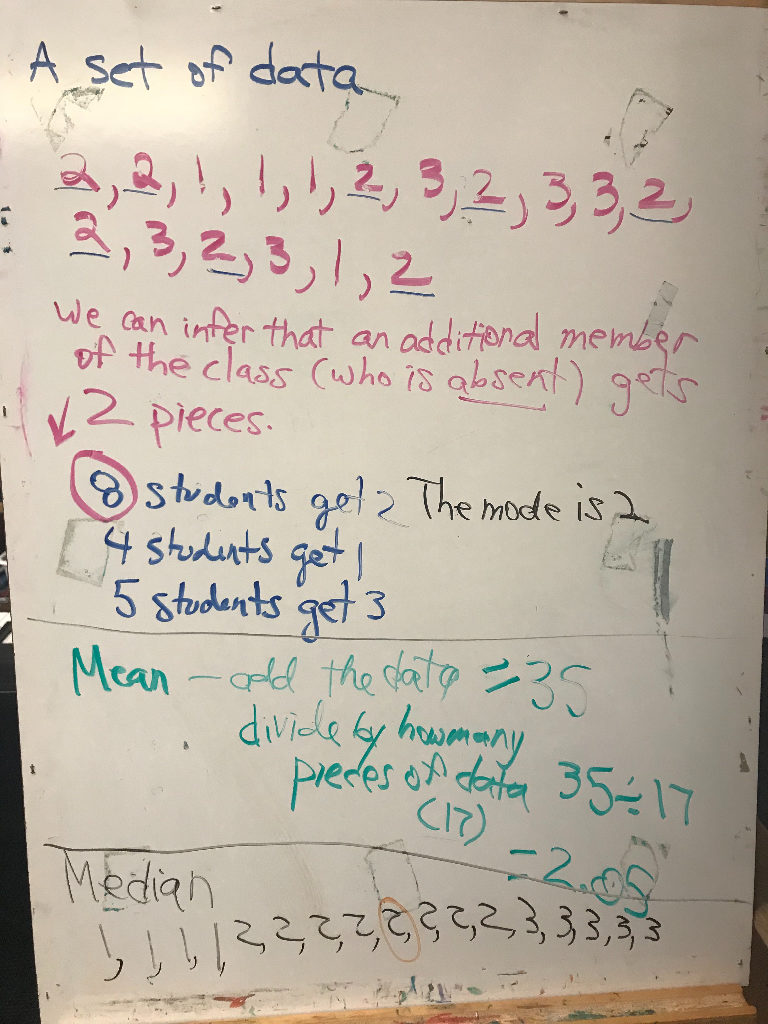 A set of data
2, 2, 1, 1, 1, 2, 3, 2, 3, 3, 2,
2, 3, 2, 3, 1, 2
We can infer that an additional member
of the class (who is absent) gets
2 pieces.
8 students get 2 The mode is 2
4 students get 1
5 students get 3
Mean - add the data = 35
divide by how many
pieces of data 35÷17
(17)
=2.05
Median
1, 1, 1, 1, 2, 2, 2, 2, 2, 2, 2, 2, 3, 3, 3, 3, 3